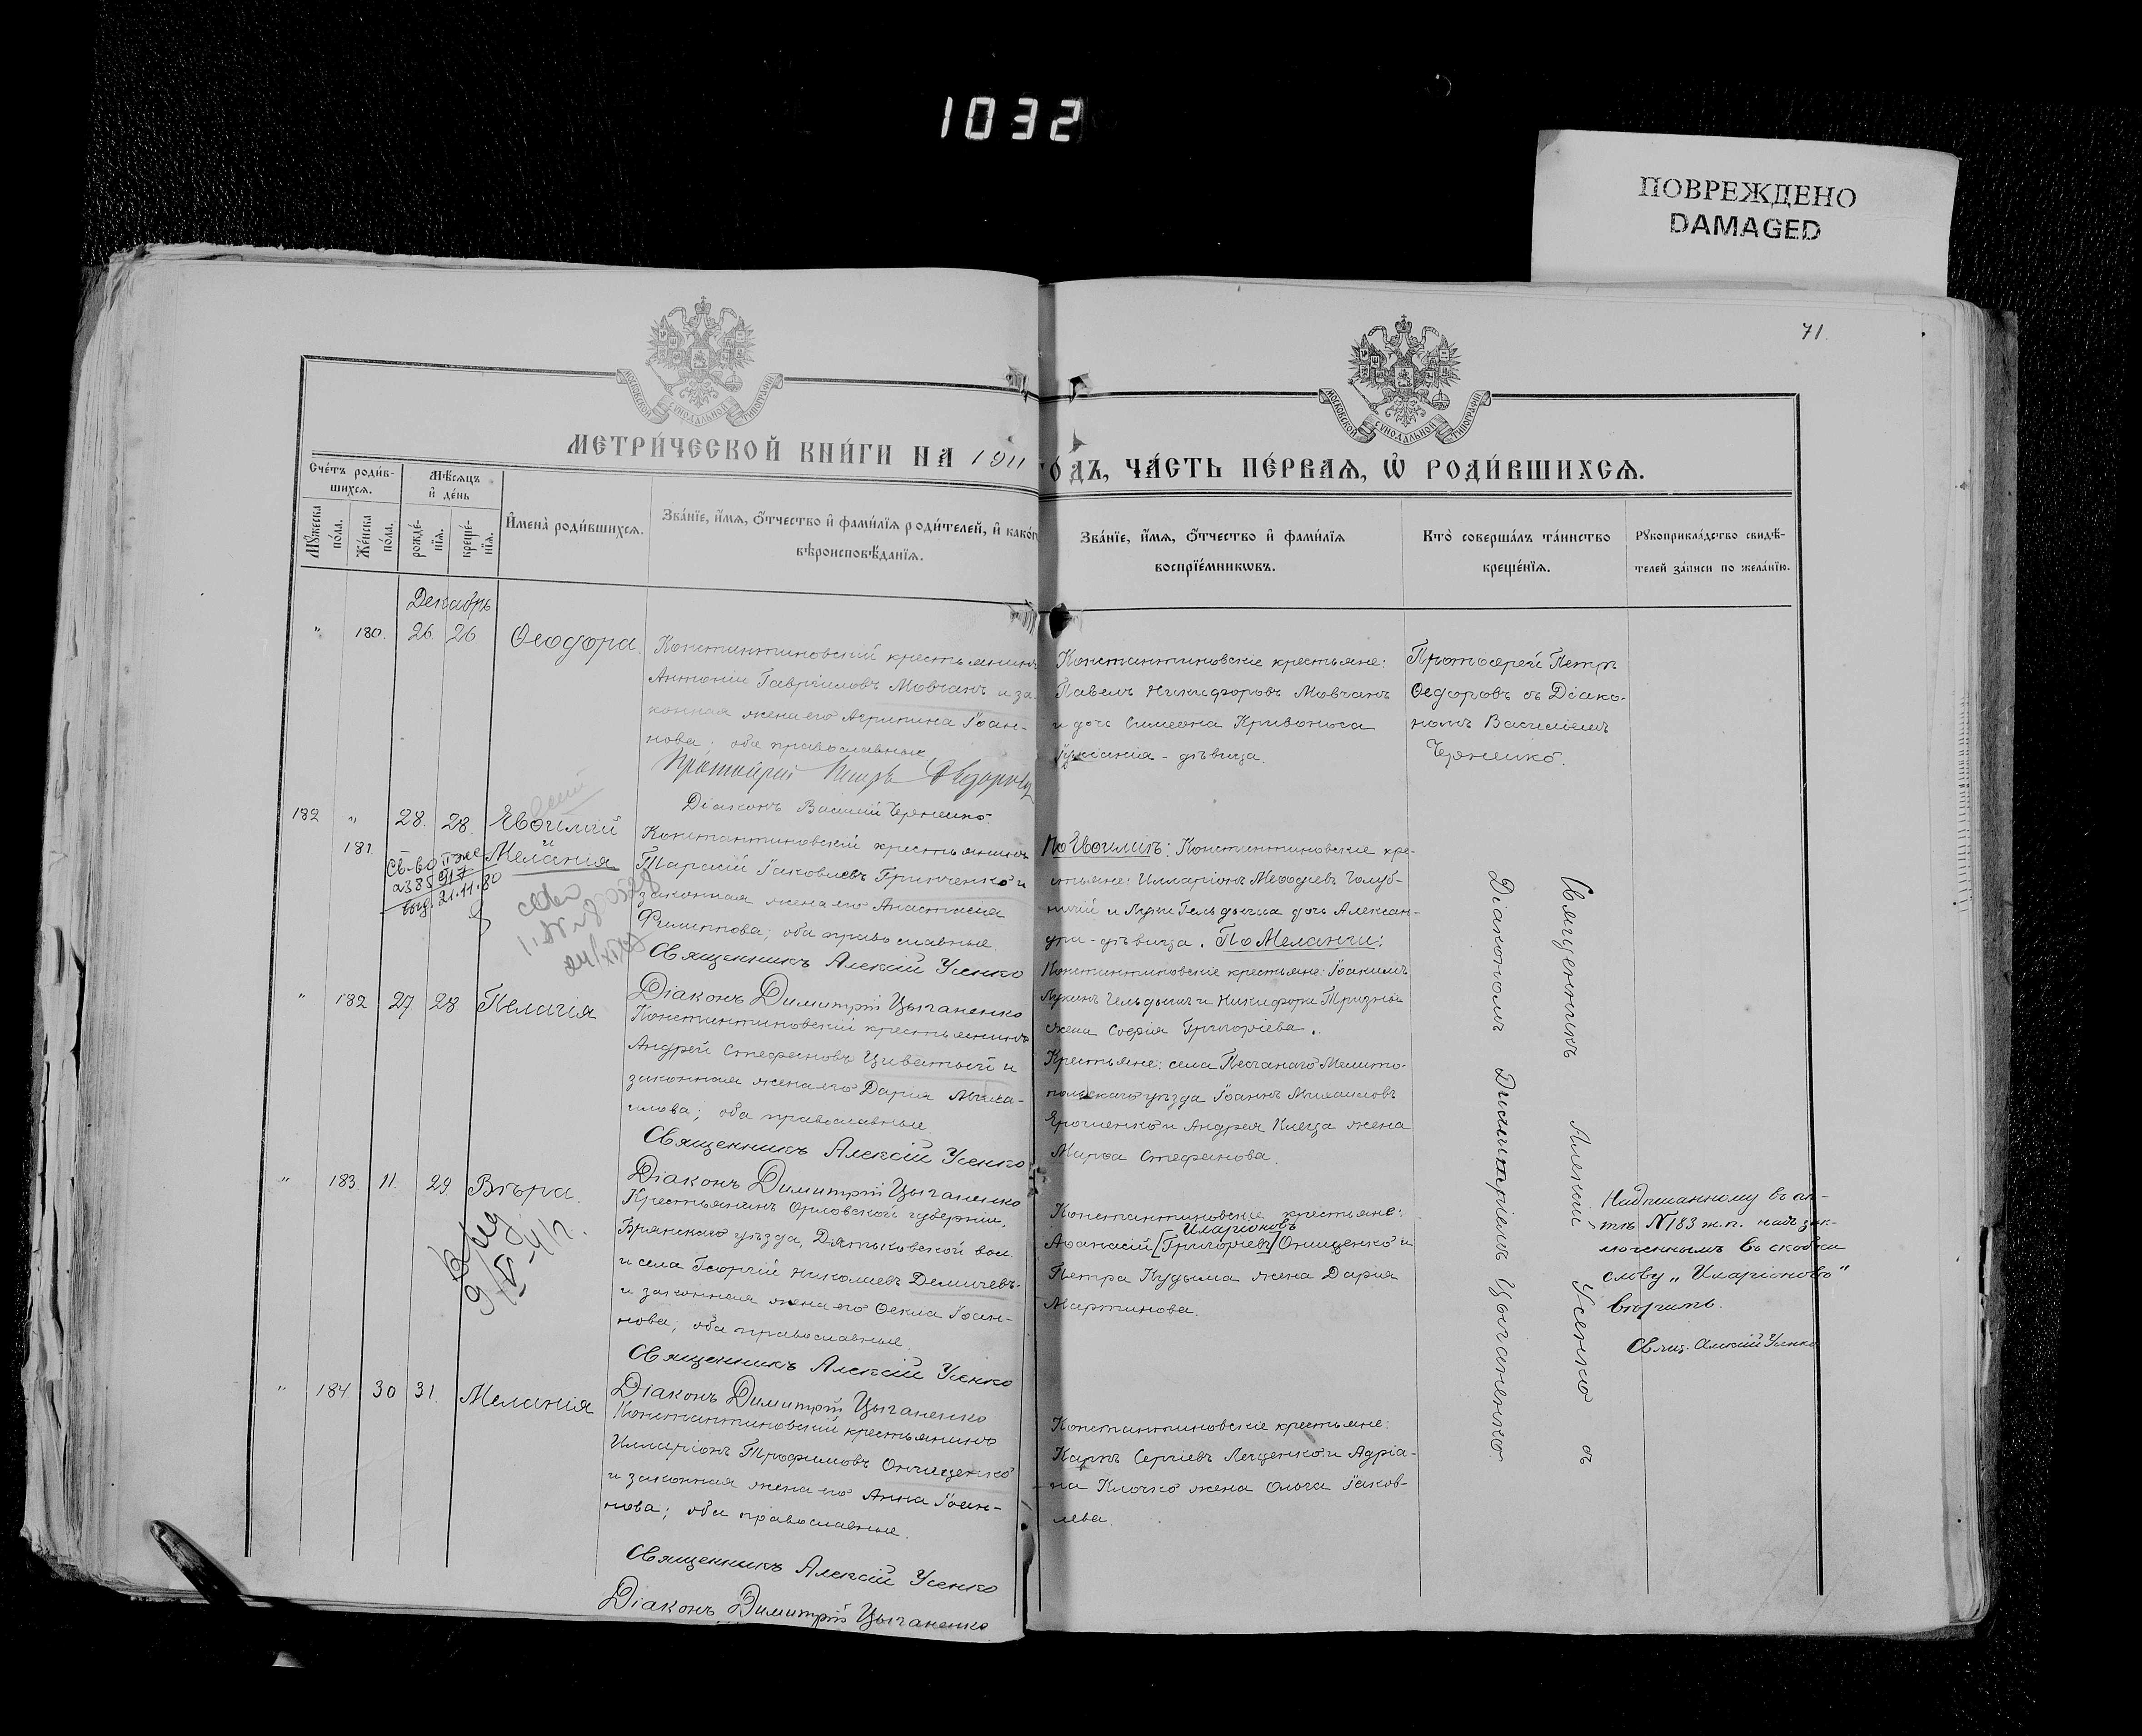 1032
ПОВРЕЖДЕНО
DAMAGED
71.
МОСКОВСКОЙ СУНОДАЛЬНОЙ ТИПОГРАФІИ
МОСКОВСКОЙ СУНОДАЛЬНОЙ ТИПОГРАФІИ
МЕТРИ́ЧЕСКОЙ КНИ́ГИ НА 1911 ГО́ДЪ, ЧА́СТЬ ПЕ́РВАѦ, Ѡ҆ РОДИ́ВШИХСѦ.
Сче́тъ роди́в-
шихсѧ.
Мꙋ́жеска по́ла.
Же́нска по́ла.
Мѣ́сѧцъ
и҆ де́нь
рожде́-
нїѧ.
креще́-
нїѧ.
И҆мена̀ роди́вшихсѧ.
Зва́нїе, и҆́мѧ, ѻ҆́тчество и҆ фами́лїѧ роди́телей, и҆ како́гѡ
вѣроисповѣ́данїѧ.
Зва́нїе, и҆́мѧ, ѻ҆́тчество и҆ фами́лїѧ
воспрїе́мникѡвъ.
Кто̀ соверша́лъ та́инство
креще́нїѧ.
Рꙋкоприкла́дство свидѣ́-
телей за́писи по жела́нїю.
Декабрь
" 180. 26. 26 Ѳеодора.
Константиновскій крестьянинъ
Антоній Гавріиловъ Мовчанъ и за-
конная жена его Агрипина Іоан-
нова; оба православные
Протоіерей Петръ Ѳедоровъ
Діаконъ Василій Черненко.
Константиновскіе крестьяне:
Павелъ Никифоровъ Мовчанъ
и дочь Симеона Кривоноса
дѣвица.
Протоіерей Петръ
Ѳедоровъ съ Діако-
номъ Василіемъ
Черненко.
182 " 28. 28. Евѳимій
и
181 Меланія
Св-во
выд. 21.11.80
Константиновскій крестьянинъ
Тарасій Іаковлевъ Гринченко и
законная жена его Анастасія
Филиппова; оба православные.
Священникъ Алексій Усенко
Діаконъ Димитрій Цыганенко
По Евѳимію: Константиновскіе кре-
стьяне: Илларіонъ Меѳодіевъ Голуб-
ничій и Луки Гельдыша дочь Алексан-
дра - дѣвица. По Меланіи:
Константиновскіе крестьяне: Іоакимъ
Лукинъ Гельдышъ и Никифора Тризны
жена Софія Григоріева.
" 182 27 28 Пелагія
Константиновскій крестьянинъ
Андрей Стефановъ Циватый и
законная жена его Дарія Миха-
илова; оба православные
Священникъ Алексій Усенко
Діаконъ Димитрій Цыганенко
Крестьяне: села Песчанаго Мелито-
польскаго уѣзда Іоаннъ Михаиловъ
Ярошенко и Андрея Клеца жена
Марѳа Стефанова.
" 183. 11. 29. Вѣра.
Крестьянинъ Орловской губерніи,
Брянскаго уѣзда, Дятьковской вол.
и села Георгій Николаевъ Демичевъ
и законная жена его Ѳекла Іоан-
нова; оба православные.
Священникъ Алексій Усенко
Діаконъ Димитрій Цыганенко
Константиновскіе крестьяне:
Иларіоновъ
Аѳанасій [Григоріевъ] Онищенко и
Петра Кудыма жена Дарія
Мартинова.
Надписанному въ ак-
тѣ №183 ж.п. надъ зак-
люченнымъ въ скобки
слову „Иларіоновъ"
вѣрить.
Свящ. Алексій Усенко
" 184 30 31. Меланія
Константиновскій крестьянинъ
Илларіонъ Трофимовъ Онищенко
и законная жена его Анна Іоан-
нова; оба православные.
Священникъ Алексій Усенко
Діаконъ Димитрій Цыганенко
Константиновскіе крестьяне:
Карпъ Сергіевъ Лещенко и Адріа-
на Клочко жена Ольга Іаков-
лева.
Священникъ Алексій Усенко съ
Діакономъ Димитріемъ Цыганенко.